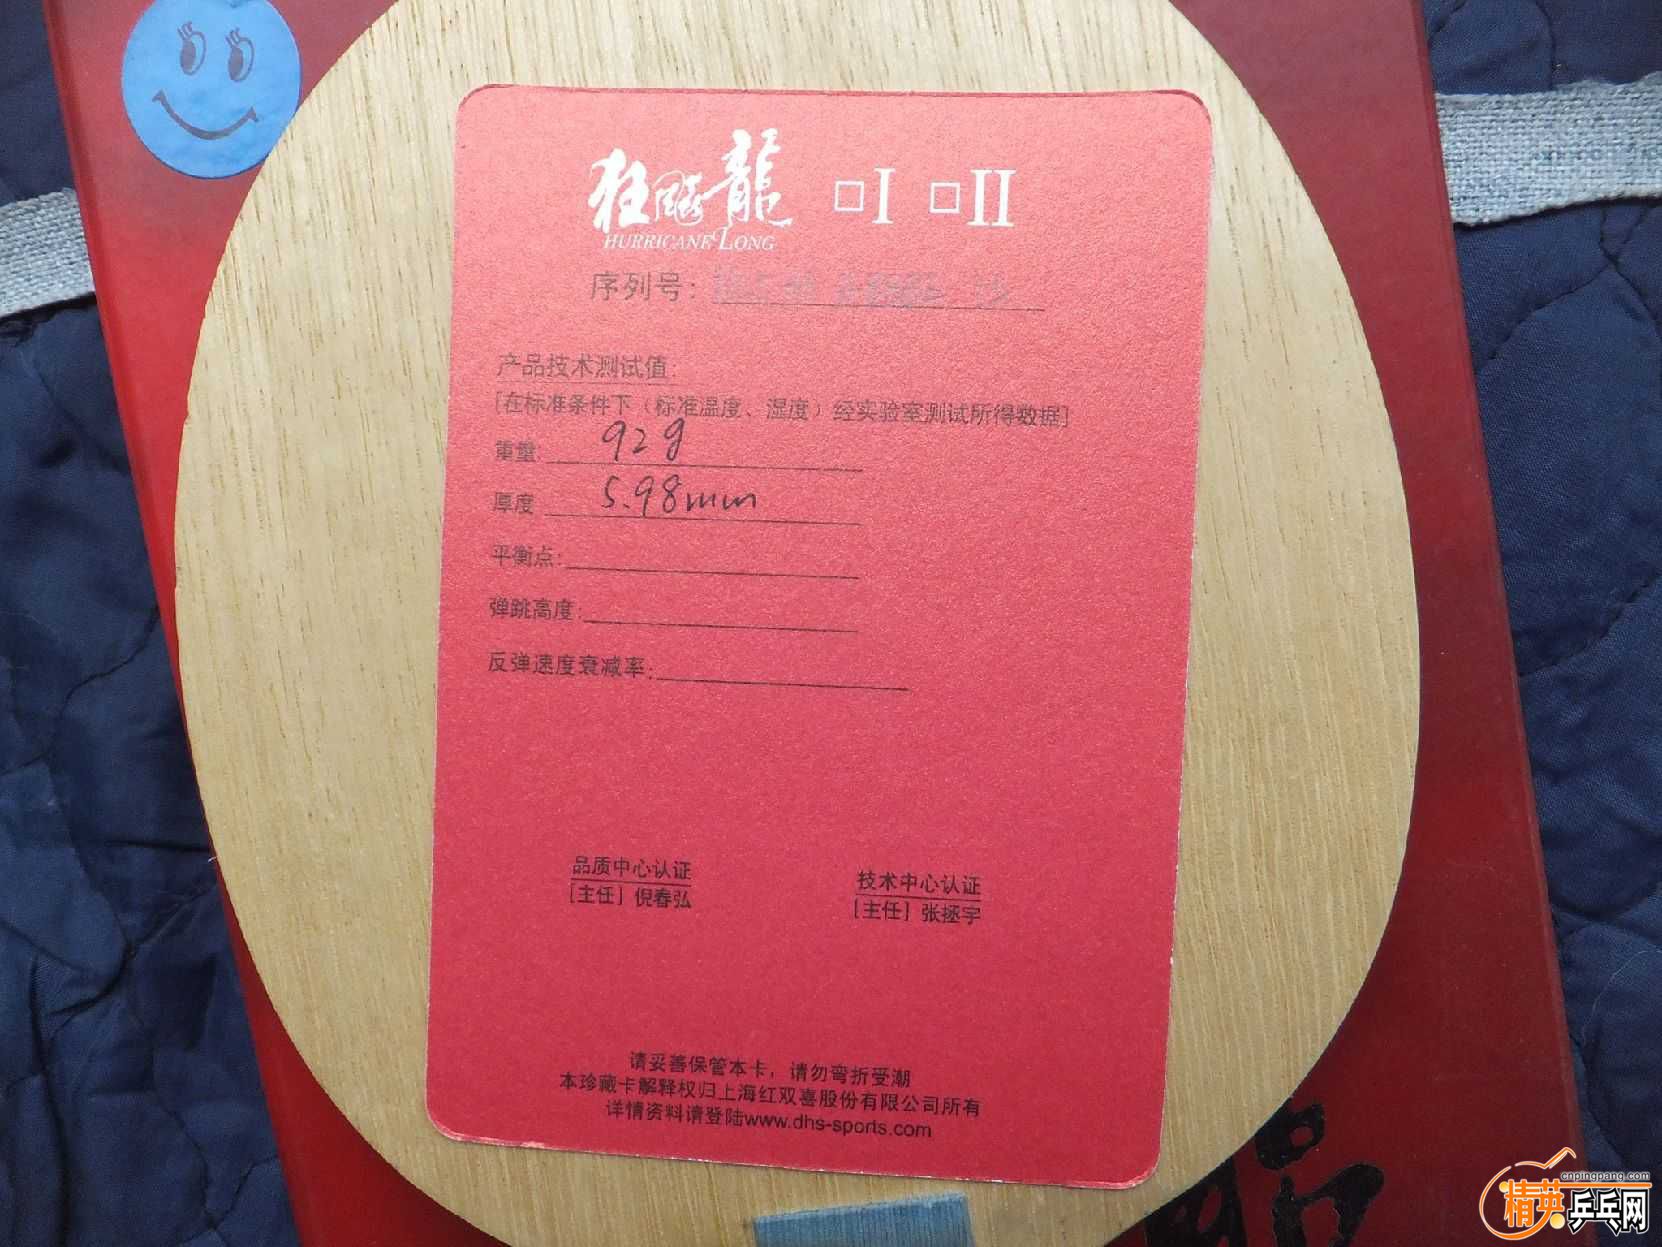 狂飚龍 □I □II
HURRICANE LONG
序列号:
产品技术测试值:
[在标准条件下（标准温度、湿度）经实验室测试所得数据]
重量: 92g
厚度 5.98mm
平衡点:
弹跳高度:
反弹速度衰减率:
品质中心认证
[主任] 倪春弘
技术中心认证
[主任] 张拯宇
请妥善保管本卡，请勿弯折受潮
本珍藏卡解释权归上海红双喜股份有限公司所有
详情资料请登陆www.dhs-sports.com
cnpingpang.com
精英乒乓网